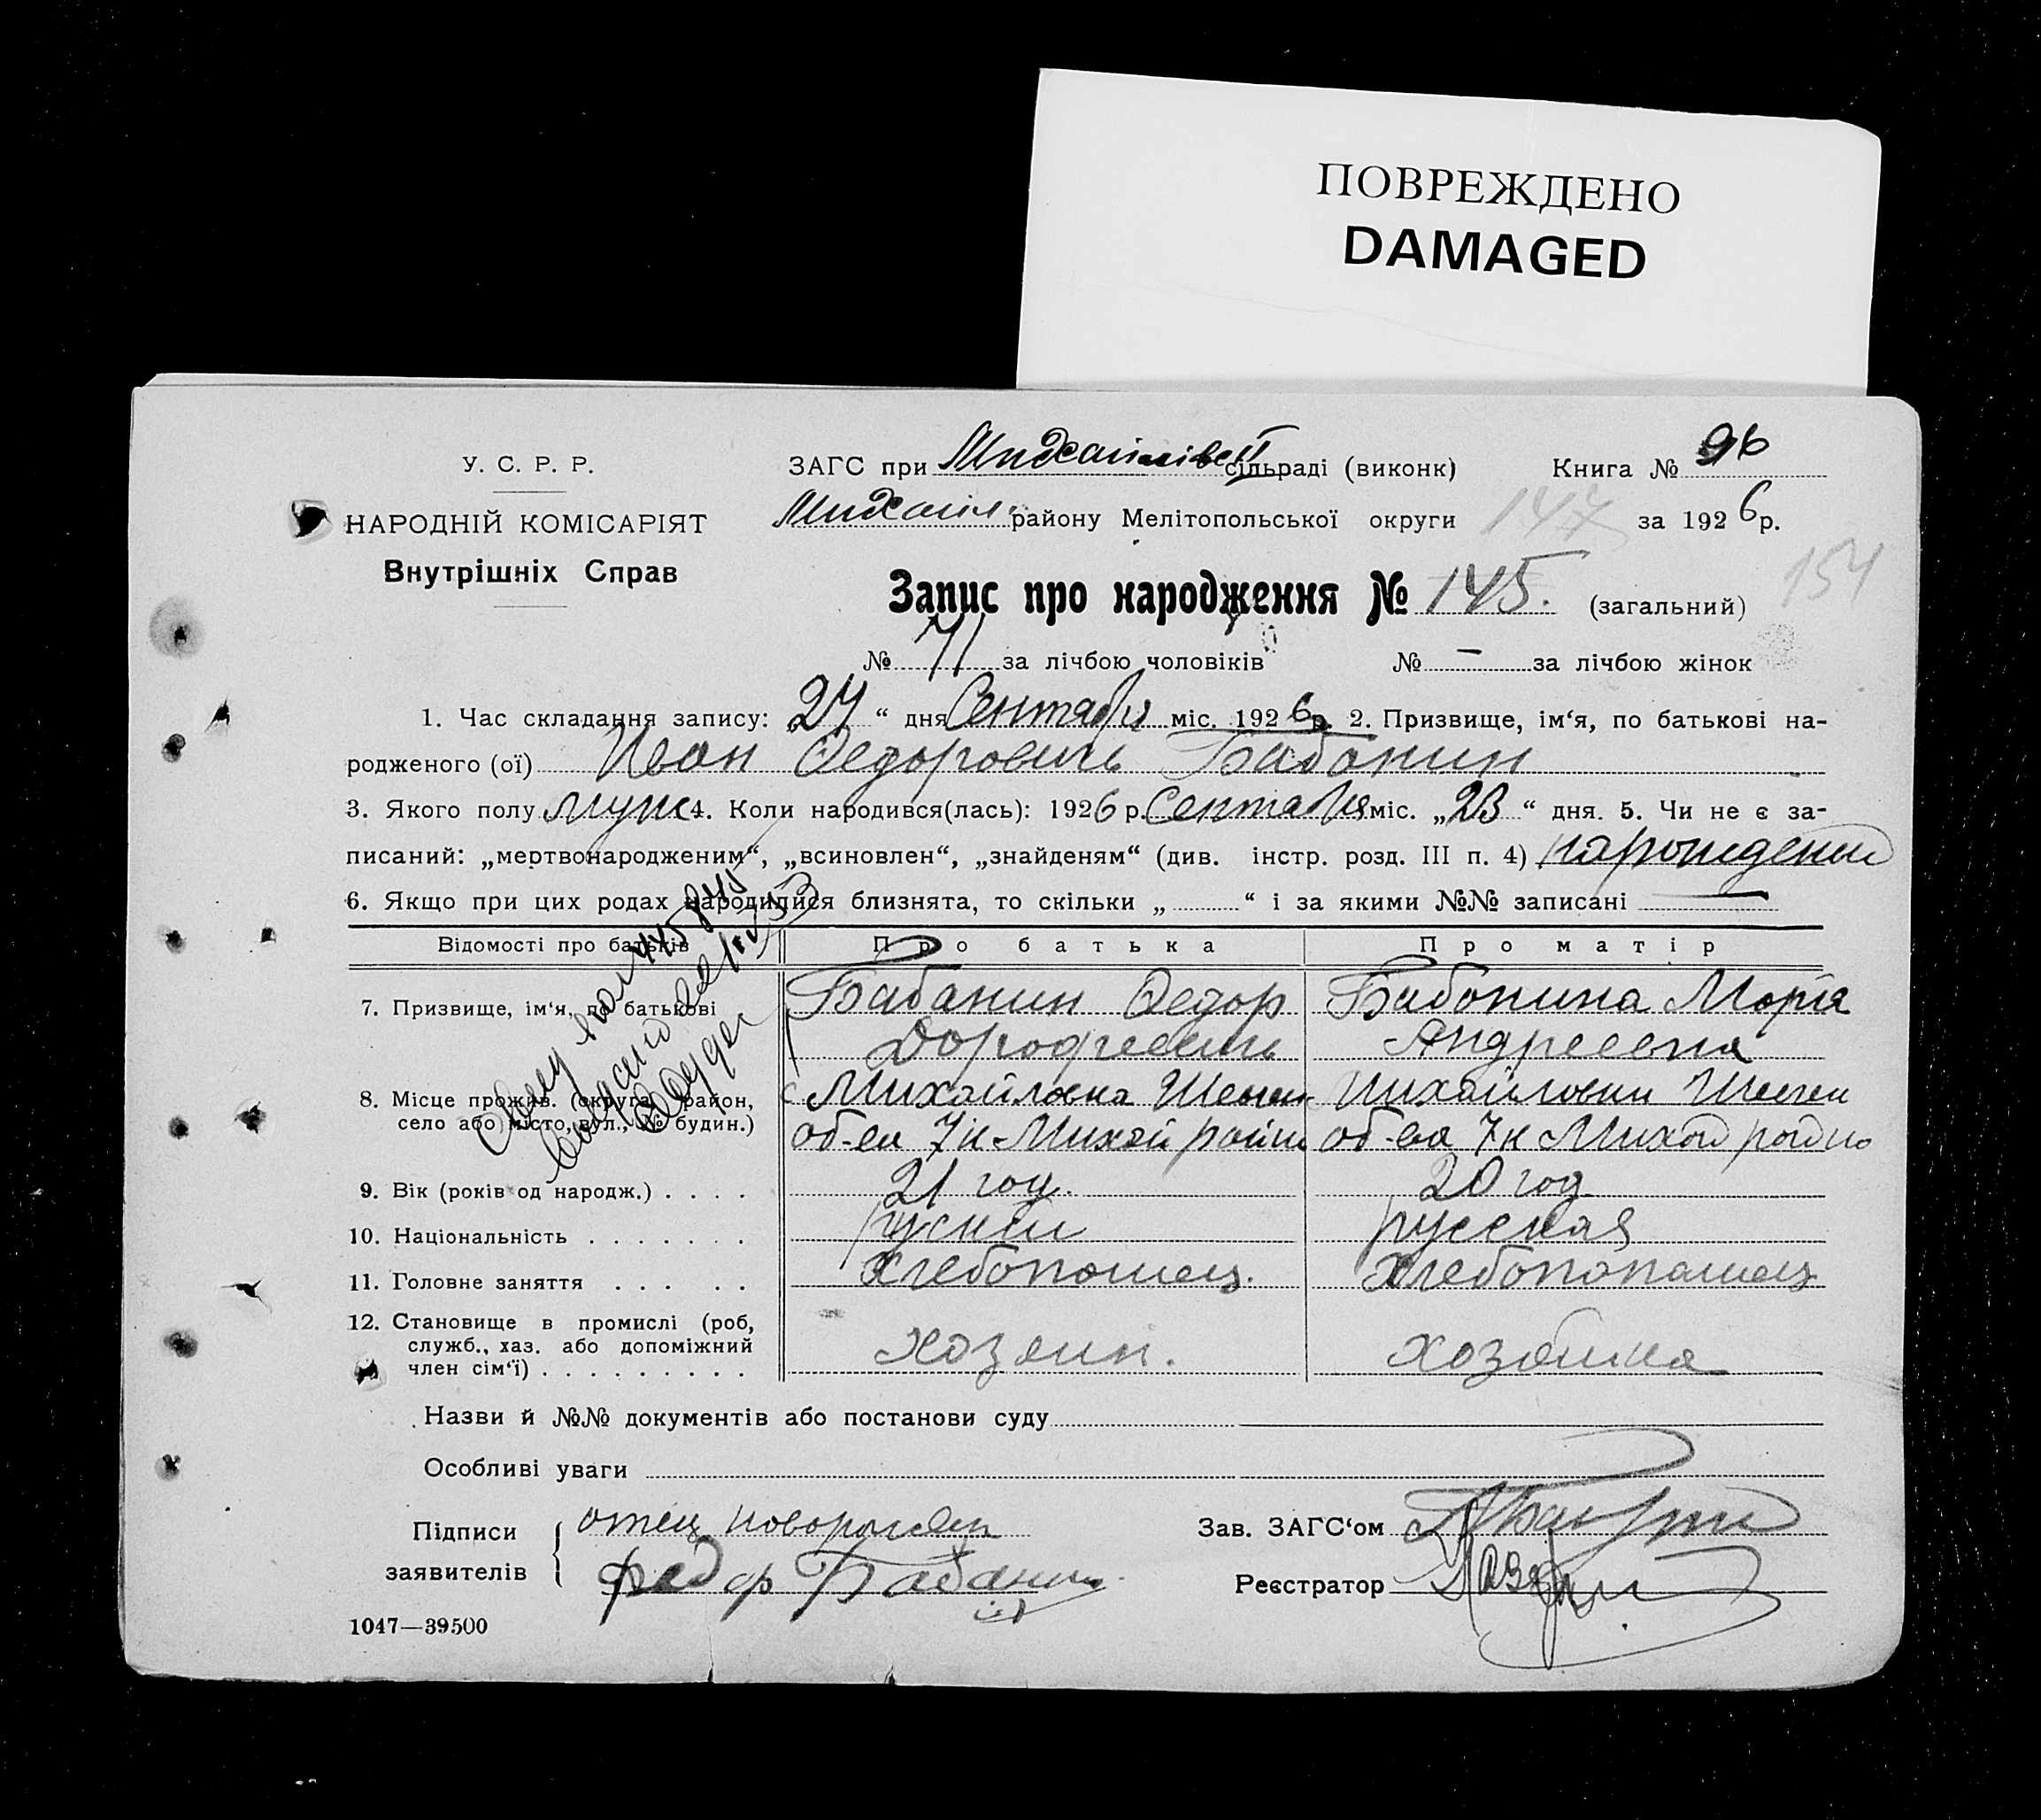 ПОВРЕЖДЕНО
DAMAGED
У. С. Р. Р.
НАРОДНІЙ КОМІСАРІЯТ
Внутрішніх Справ
ЗАГС при сільраді (виконк)
Книга № 96
району Мелітопольської округи 147 за 1926 р.
154
Запис про народження № 145. (загальний)
№ 71 за лічбою чоловіків № — за лічбою жінок
1. Час складання запису: „27“ дня Сентября міс. 1926 р. 2. Призвище, ім‘я, по батькові на-
родженого (ої) Иван Федорович Бабанин
3. Якого полу муж 4. Коли народився(лась): 1926 р. Сентября міс. „23“ дня. 5. Чи не є за-
писаний: „мертвонародженим“, „всиновлен“, „знайденям“ (див. інстр. розд. III п. 4)
6. Якщо при цих родах народилися близнята, то скільки „ “ і за якими №№ записані —
Відомості про батьків
Про батька
Про матір
7. Призвище, ім‘я, по батькові
Бабанин Федор
Дорофеевич
Бабонина Мория
Андреевна
8. Місце прожив. (округа, район,
село або місто, вул., № будин.)
Михайловка
об-ва 7 к Михай район
об-ва 7 к
9. Вік (років од народж.) . . . .
21 год.
20 год
10. Національність . . . . . . .
руский
русская
11. Головне заняття . . . . .
Хлебопошец.
Хлебопопашец
12. Становище в промислі (роб,
служб., хаз. або допоміжний
член сім‘ї) . . . . . . . . .
хозяин.
хозяйка
Назви й №№ документів або постанови суду
Особливі уваги
Підписи
заявителів
отец
Федор Бабанин
Зав. ЗАГС‘ом
Реєстратор
1047—39500